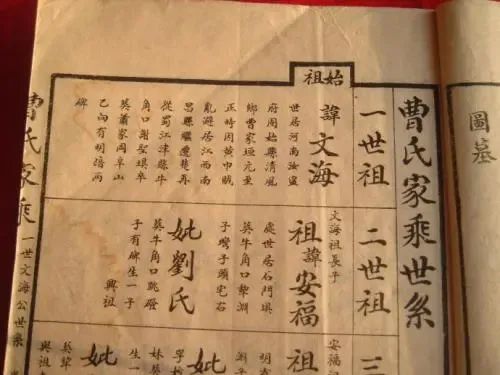 圖墓
曹氏家乘世系
始祖
一世祖
諱文海
世居河南汝寧
府固始縣清風
鄉曹家垣元至
正時因黃巾賊
亂避居江西南
昌縣繼遷楚再
從蜀江津縣牛
角口謝聖琪卒
葬蕭家岡阜山
乙向有明培兩
碑
二世祖
文海祖長子
祖諱安福
處世居石門垻
葬牛角口犂淵
子灣子頭宅右
妣劉氏
葬牛角口跳磴
子有碑生一子
興祖
三
安福
妣
妣
曹氏家乘
一世文海公世系